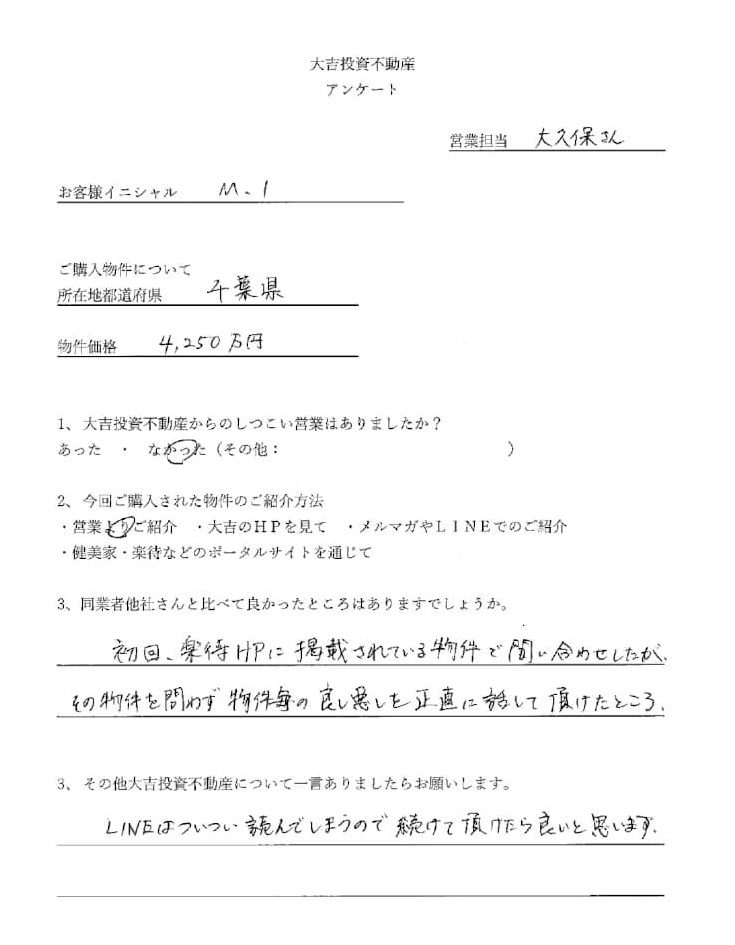 大吉投資不動産
アンケート
営業担当 大久保さん
お客様イニシャル M.I
ご購入物件について
所在地都道府県 千葉県
物件価格 4,250万円
1、大吉投資不動産からのしつこい営業はありましたか？
あった ・ なかった（その他： ）
2、今回ご購入された物件のご紹介方法
・営業よりご紹介 ・大吉のＨＰを見て ・メルマガやＬＩＮＥでのご紹介
・健美家・楽待などのポータルサイトを通じて
3、同業者他社さんと比べて良かったところはありますでしょうか。
初回、楽待HPに掲載されている物件で問い合わせしたが、
その物件を問わず物件毎の良し悪しを正直に話して頂けたところ。
3、その他大吉投資不動産について一言ありましたらお願いします。
LINEはついつい読んでしまうので続けて頂けたら良いと思います。